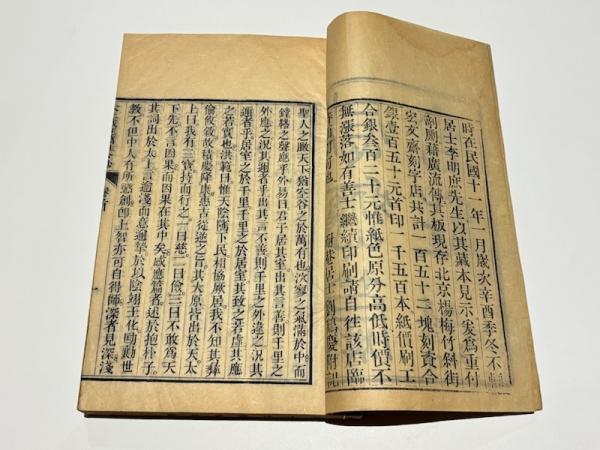 時在民國十一年一月歲次辛酉季冬不
居士李明庶先生以其藏本見示爰為重付
剞劂藉廣流傳其板現存北京楊梅竹斜街
宏友齋刻字店共計一百五十二塊刻資合
銀壹百五十元首印一千五百本紙價刷工
合銀叁百二十元惟紙色原分高低時價不
無漲落如有善士繼續印刷請自往該店臨
居士劉慶附記
聖人之臨天下猶空谷之於萬有也泬寥之氣滿於中而
鐘鞳之聲應乎外易曰君子居其室出其言善則千里之
外應之況其邇者乎出其言不善則千里之外違之況其
邇者乎居室之於千里千里之於居室其致之若虛其應
之若實也洪範曰惟天陰隲下民相協厥居我不知其彝
倫攸敘故積慶降康惠吉從逆之旨其大原皆出於天太
上曰我有三寶持而行之一曰慈二曰儉三曰不敢為天
下先不言因果而因果在其中矣感應篇者述於抱朴子
其詞出於太上言淺而意摯於以陰翊王化勸世
教不但中人有所懲創即上智亦可自得師深者見深淺